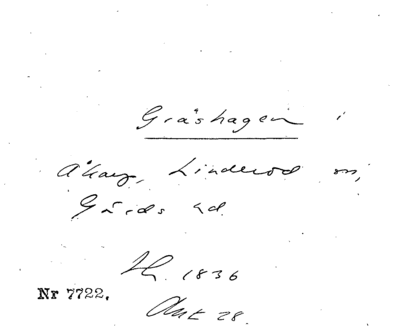 Gräshagen i
Åkarp, Linderöd sn,
Gärds hd.
Lr. 1836
Nr 7722.
Akt 28.